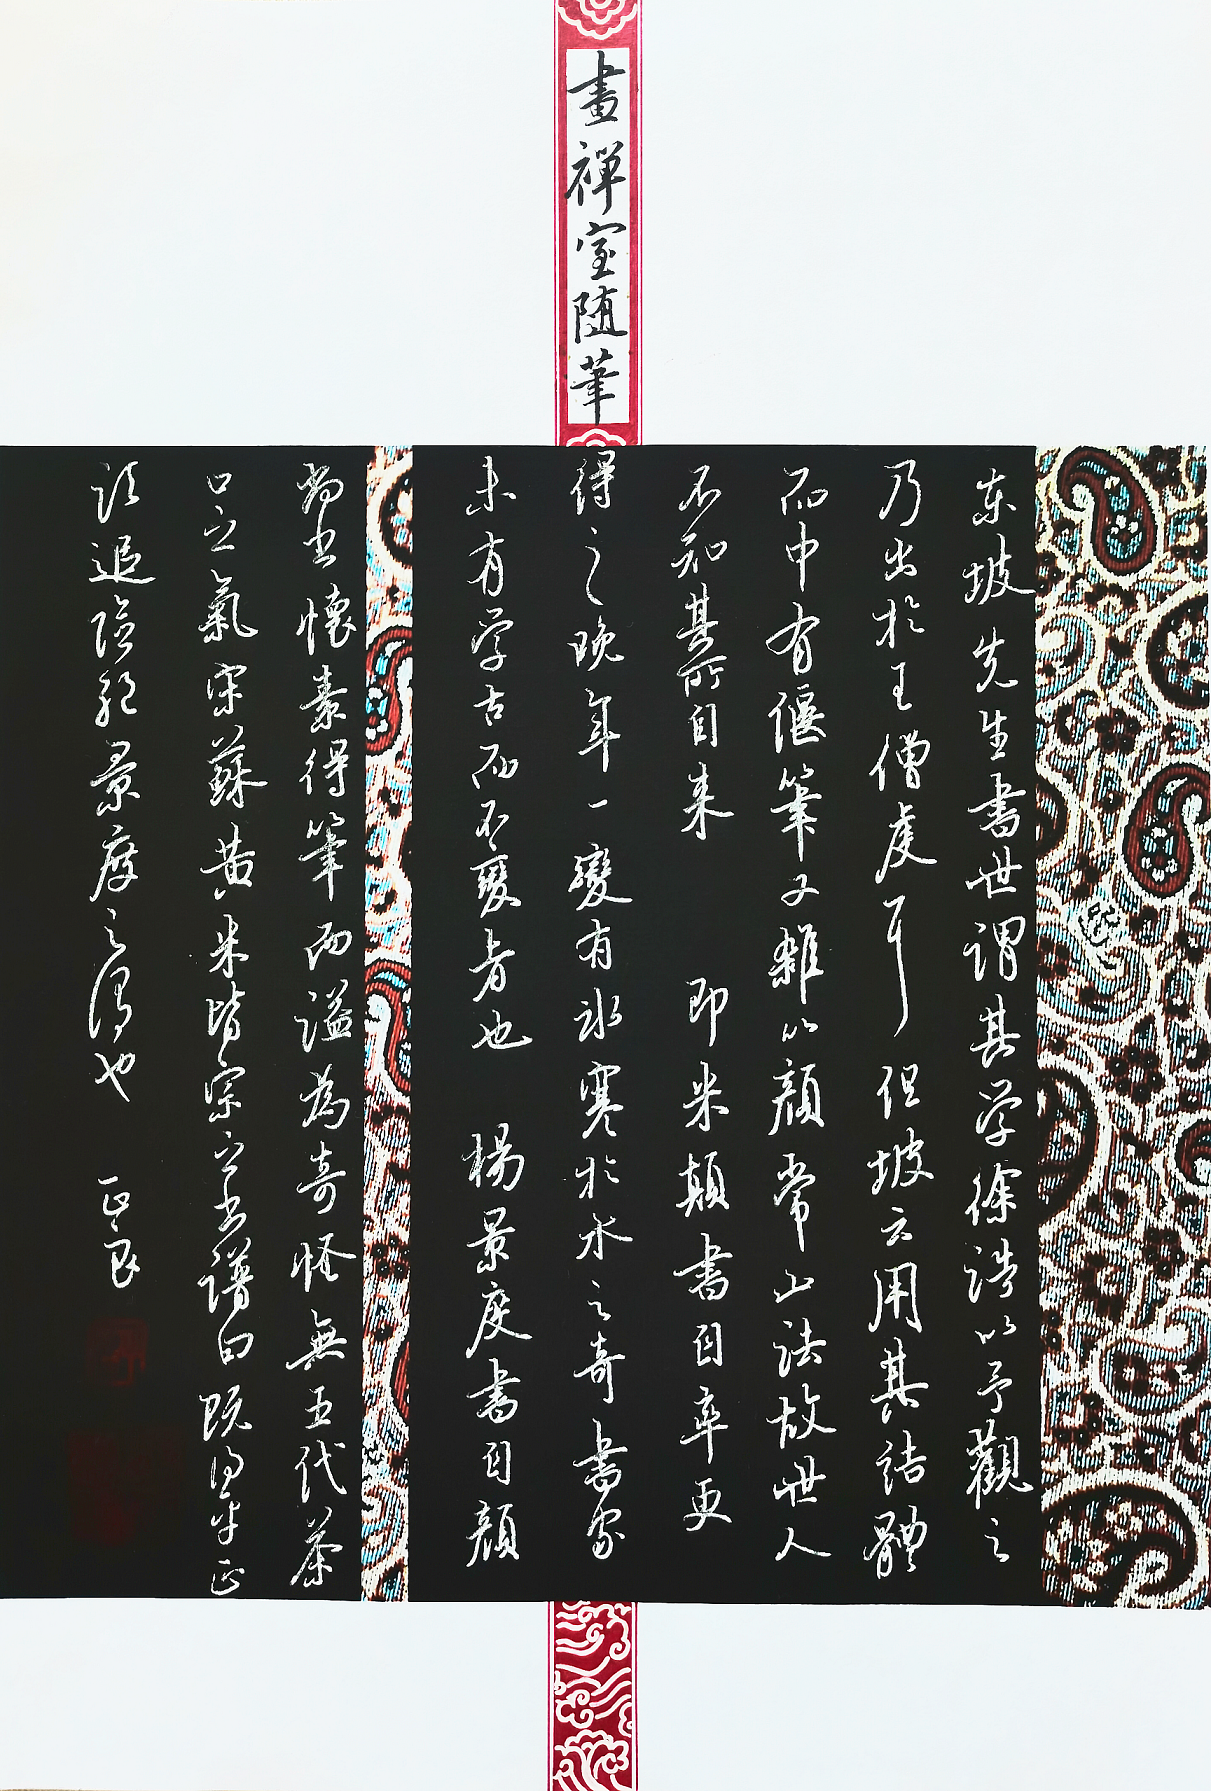 畫禪室随筆
东坡先生書世謂其学徐浩以予觀之
乃出於王僧虔耳 但坡云用其结體
而中有偃筆又雜以顏常山法故世人
不知其所自来 即米顛書自率更
得之晚年一變有冰寒於水之奇書家
未有学古而不變者也 楊景度書自顏
尚书懷素得筆而溢為奇怪無五代茶
之氣宋蘇黄米皆宗之书譜曰既得平正
须追險绝景度之謂也 正良